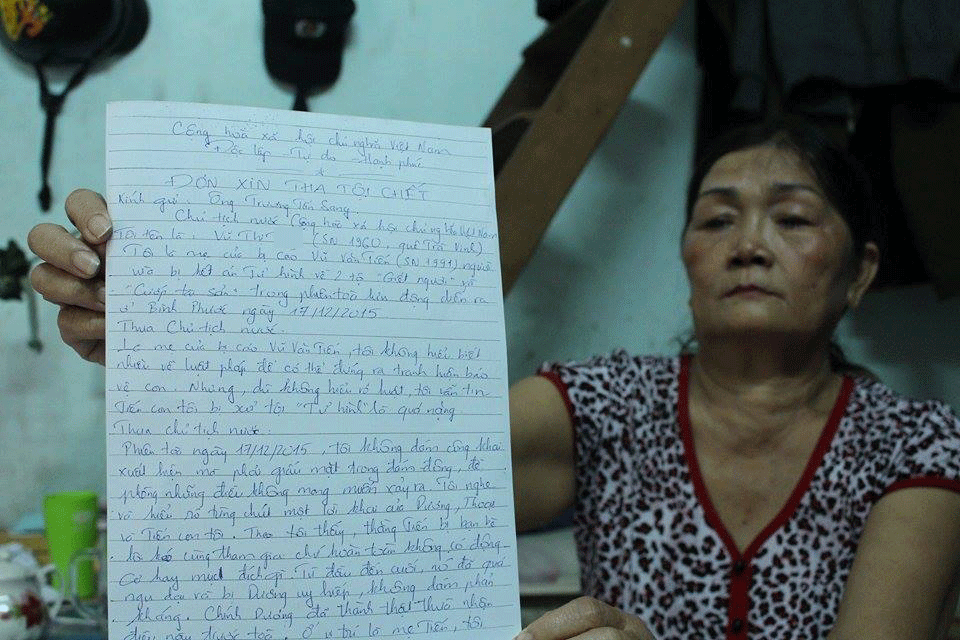 Cộng hoà xã hội chủ nghĩa Việt Nam
Độc lập - Tự do - Hạnh phúc
ĐƠN XIN THA TỘI CHẾT
Kính gửi: Ông Trương Tấn Sang.
Chủ tịch nước Cộng hoà xã hội chủ nghĩa Việt Nam
Tôi tên là: Vũ Thị (SN 1960, quê Trà Vinh)
Tôi là mẹ của bị cáo Vũ Văn Tiến (SN 1991) người
vừa bị kết án Tử hình về 2 tội "Giết người" và
"Cướp tài sản" trong phiên toà lưu động diễn ra
ở Bình Phước ngày 17/12/2015
Thưa Chủ tịch nước.
Là mẹ của bị cáo Vũ Văn Tiến, tôi không hiểu biết
nhiều về luật pháp để có thể đứng ra tranh luận bảo
vệ con. Nhưng, dù không hiểu rõ luật, tôi vẫn tin
Tiến con tôi bị xử tội "Tử hình" là quá nặng
Thưa chủ tịch nước.
Phiên toà ngày 17/12/2015, tôi không dám công khai
xuất hiện mà phải giấu mặt trong đám đông, đề
phòng những điều không mong muốn xảy ra. Tôi nghe
và hiểu rõ từng chút một lời khai của Dương, Thoại
và Tiến con tôi. Theo tôi thấy, thằng Tiến bị bạn bè
lôi kéo cùng tham gia chứ hoàn toàn không có động
cơ hay mục đích gì. Từ đầu đến cuối, nó đã quá
ngu dại và bị Dương uy hiếp, không dám phản
kháng. Chính Dương đã thành thật thừa nhận
điều này trước toà. Ở vị trí là mẹ Tiến, tôi